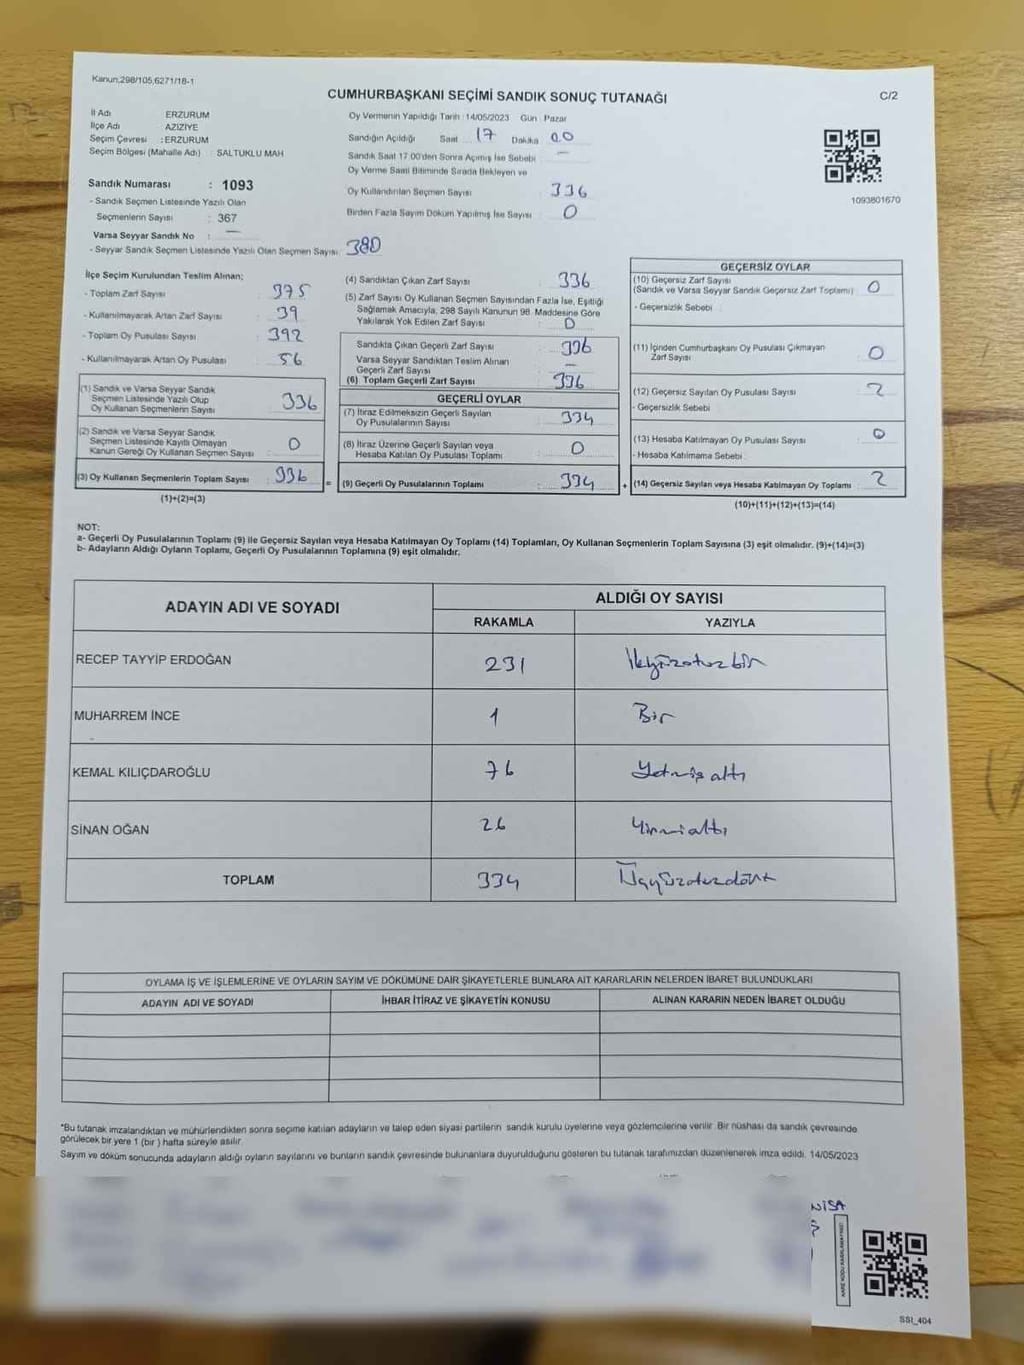 Kanun,298/105,6271/18-1
CUMHURBAŞKANI SEÇİMİ SANDIK SONUÇ TUTANAĞI
C/2
İl Adı ERZURUM
İlçe Adı AZİZİYE
Seçim Çevresi : ERZURUM
Seçim Bölgesi (Mahalle Adı) : SALTUKLU MAH
Sandık Numarası : 1093
- Sandık Seçmen Listesinde Yazılı Olan
Seçmenlerin Sayısı : 367
Varsa Seyyar Sandık No : —
- Seyyar Sandık Seçmen Listesinde Yazılı Olan Seçmen Sayısı 380
Oy Vermenin Yapıldığı Tarih : 14/05/2023 Gün : Pazar
Sandığın Açıldığı Saat 17 Dakika 00
Sandık Saat 17.00'den Sonra Açılmış İse Sebebi —
Oy Verme Saati Bitiminde Sırada Bekleyen ve
Oy Kullandırılan Seçmen Sayısı : 336
Birden Fazla Sayım Döküm Yapılmış İse Sayısı : 0
1093801670
İlçe Seçim Kurulundan Teslim Alınan;
- Toplam Zarf Sayısı : 375
- Kullanılmayarak Artan Zarf Sayısı : 39
- Toplam Oy Pusulası Sayısı : 392
- Kullanılmayarak Artan Oy Pusulası : 56
(1) Sandık ve Varsa Seyyar Sandık
Seçmen Listesinde Yazılı Olup
Oy Kullanan Seçmenlerin Sayısı : 336
(2) Sandık ve Varsa Seyyar Sandık
Seçmen Listesinde Kayıtlı Olmayan
Kanun Gereği Oy Kullanan Seçmen Sayısı : 0
(3) Oy Kullanan Seçmenlerin Toplam Sayısı : 336
(1)+(2)=(3)
(4) Sandıktan Çıkan Zarf Sayısı : 336
(5) Zarf Sayısı Oy Kullanan Seçmen Sayısından Fazla İse, Eşitliği
Sağlamak Amacıyla, 298 Sayılı Kanunun 98. Maddesine Göre
Yakılarak Yok Edilen Zarf Sayısı : 0
Sandıkta Çıkan Geçerli Zarf Sayısı : 336
Varsa Seyyar Sandıktan Teslim Alınan
Geçerli Zarf Sayısı : —
(6) Toplam Geçerli Zarf Sayısı : 336
GEÇERLİ OYLAR
(7) İtiraz Edilmeksizin Geçerli Sayılan
Oy Pusulalarının Sayısı : 334
(8) İtiraz Üzerine Geçerli Sayılan veya
Hesaba Katılan Oy Pusulası Toplamı : 0
= (9) Geçerli Oy Pusulalarının Toplamı : 334
GEÇERSİZ OYLAR
(10) Geçersiz Zarf Sayısı
(Sandık ve Varsa Seyyar Sandık Geçersiz Zarf Toplamı) : 0
- Geçersizlik Sebebi :
(11) İçinden Cumhurbaşkanı Oy Pusulası Çıkmayan
Zarf Sayısı : 0
(12) Geçersiz Sayılan Oy Pusulası Sayısı : 2
- Geçersizlik Sebebi :
(13) Hesaba Katılmayan Oy Pusulası Sayısı : 0
- Hesaba Katılmama Sebebi :
+ (14) Geçersiz Sayılan veya Hesaba Katılmayan Oy Toplamı : 2
(10)+(11)+(12)+(13)=(14)
NOT:
a- Geçerli Oy Pusulalarının Toplamı (9) ile Geçersiz Sayılan veya Hesaba Katılmayan Oy Toplamı (14) Toplamları, Oy Kullanan Seçmenlerin Toplam Sayısına (3) eşit olmalıdır. (9)+(14)=(3)
b- Adayların Aldığı Oyların Toplamı, Geçerli Oy Pusulalarının Toplamına (9) eşit olmalıdır.
ADAYIN ADI VE SOYADI ALDIĞI OY SAYISI
RAKAMLA YAZIYLA
RECEP TAYYİP ERDOĞAN 231 İkiyüzotuzbir
MUHARREM İNCE 1 Bir
KEMAL KILIÇDAROĞLU 76 Yetmişaltı
SİNAN OĞAN 26 Yirmialtı
TOPLAM 334 Üçyüzotuzdört
OYLAMA İŞ VE İŞLEMLERİNE VE OYLARIN SAYIM VE DÖKÜMÜNE DAİR ŞİKAYETLERLE BUNLARA AİT KARARLARIN NELERDEN İBARET BULUNDUKLARI
ADAYIN ADI VE SOYADI İHBAR İTİRAZ VE ŞİKAYETİN KONUSU ALINAN KARARIN NEDEN İBARET OLDUĞU
*Bu tutanak imzalandıktan ve mühürlendikten sonra seçime katılan adayların ve talep eden siyasi partilerin sandık kurulu üyelerine veya gözlemcilerine verilir. Bir nüshası da sandık çevresinde
görülecek bir yere 1 (bir ) hafta süreyle asılır.
Sayım ve döküm sonucunda adayların aldığı oyların sayılarını ve bunların sandık çevresinde bulunanlara duyurulduğunu gösteren bu tutanak tarafımızdan düzenlenerek imza edildi. 14/05/2023
NİSA
KARE KODU KARALAMAYINIZ!
SSI_404